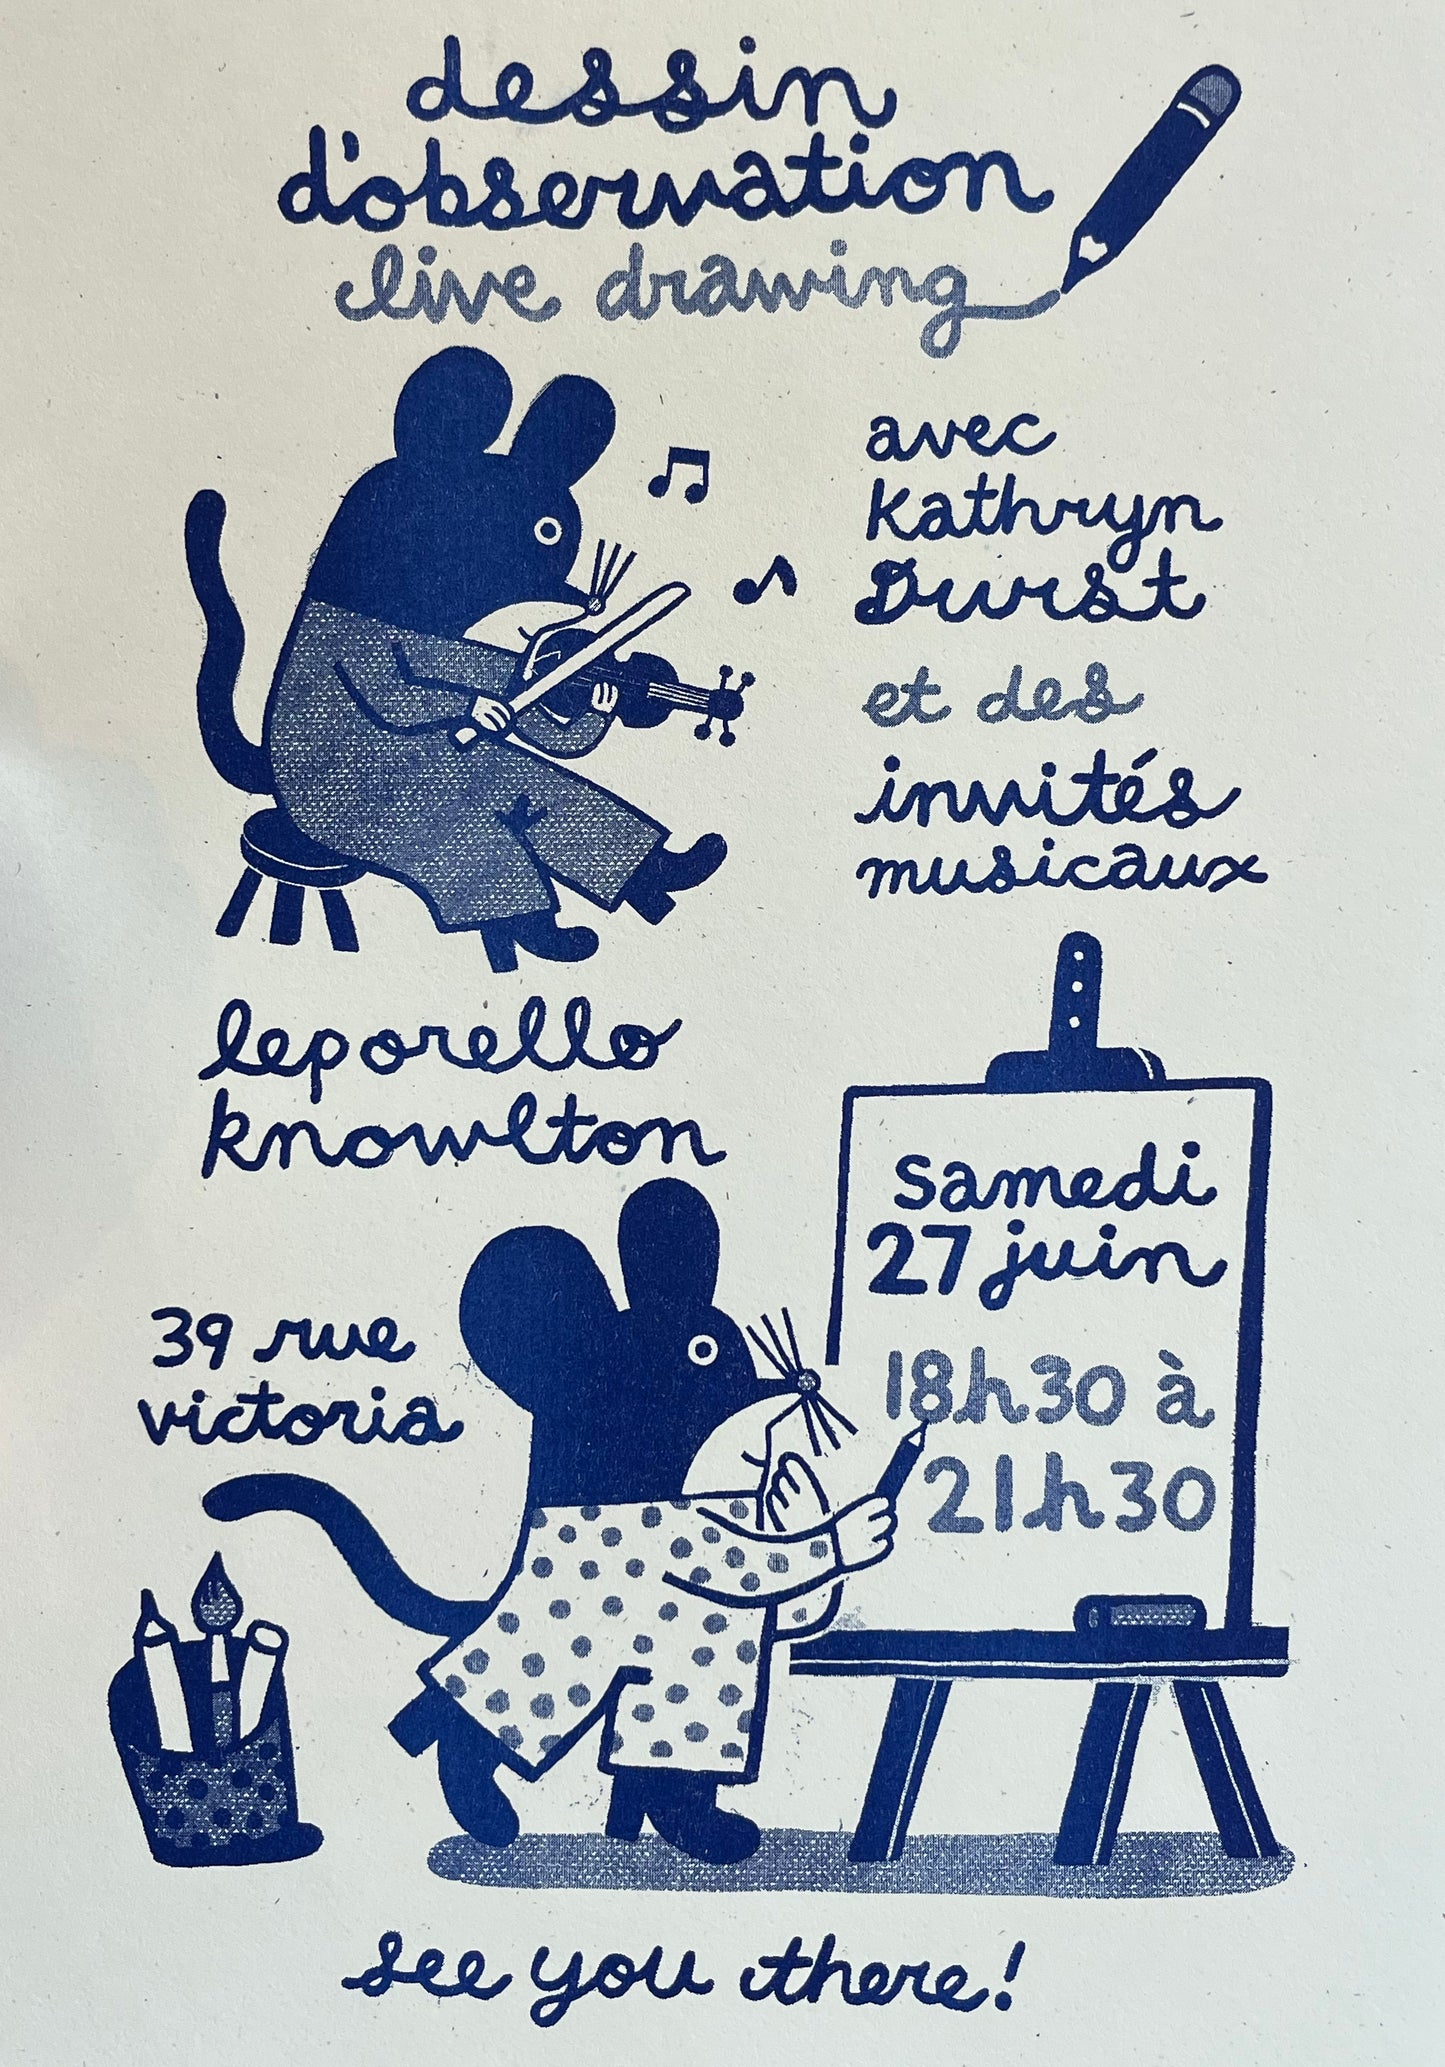 dessin
d'observation
live drawing
avec
Kathryn
Durst
et des
invités
musicaux
leporello
knowlton
39 rue
victoria
samedi
27 juin
18h30 à
21h30
see you there!